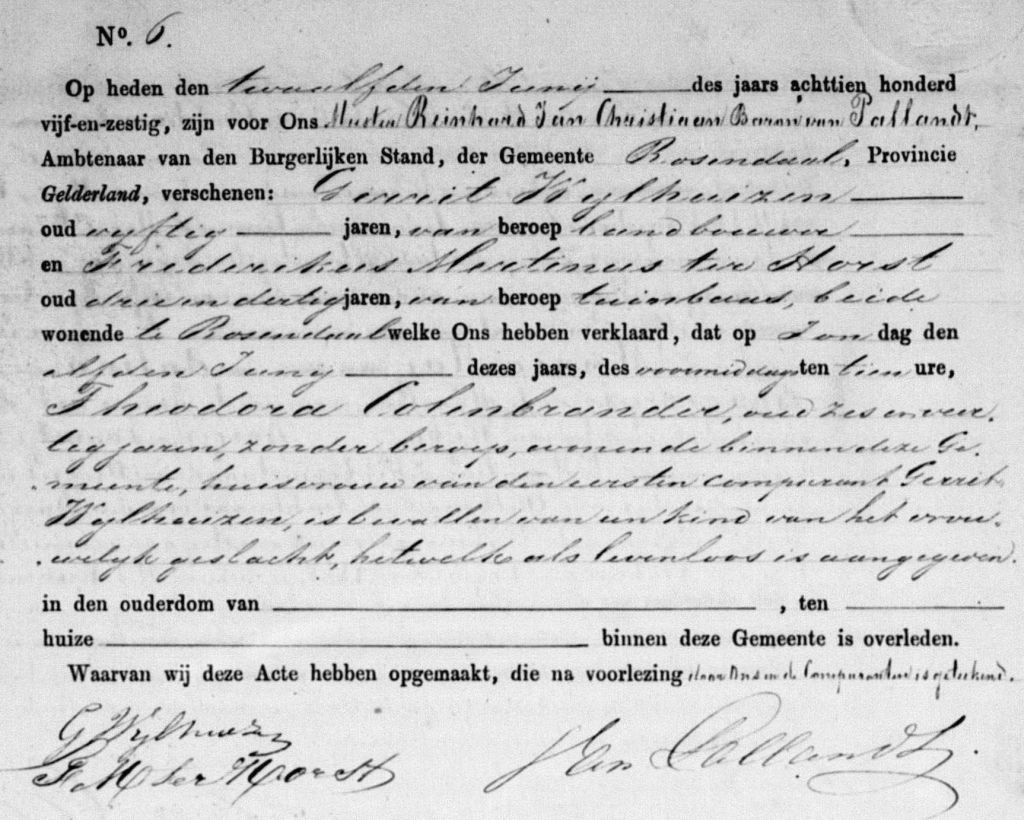 No. 6.
Op heden den twaalfden Junij des jaars achttien honderd
vijf-en-zestig, zijn voor Ons Meester Reinhard Jan Christiaan Baron van Pallandt,
Ambtenaar van den Burgerlijken Stand, der Gemeente Rosendaal, Provincie
Gelderland, verschenen: Gerrit Wylhuizen
oud vyftig jaren, van beroep landbouwer
en Frederikus Martinus ter Horst
oud drie en dertig jaren, van beroep tuinbaas, beide
wonende te Rosendaal welke Ons hebben verklaard, dat op Zon dag den
elfden Junij dezes jaars, des voormiddags ten tien ure,
Theodora Colenbrander, oud zes en veer-
tig jaren, zonder beroep, wonende binnen deze Ge-
meente, huisvrouw van den eersten comparant Gerrit
Wylhuizen, is bevallen van een kind van het vrou-
welyk geslacht, hetwelk als levenloos is aangegeven.
in den ouderdom van , ten
huize binnen deze Gemeente is overleden.
Waarvan wij deze Acte hebben opgemaakt, die na voorlezing door Ons en de Comparanten is geteekend.
G Wylhuizen
F. M ter Horst
Van Pallandt